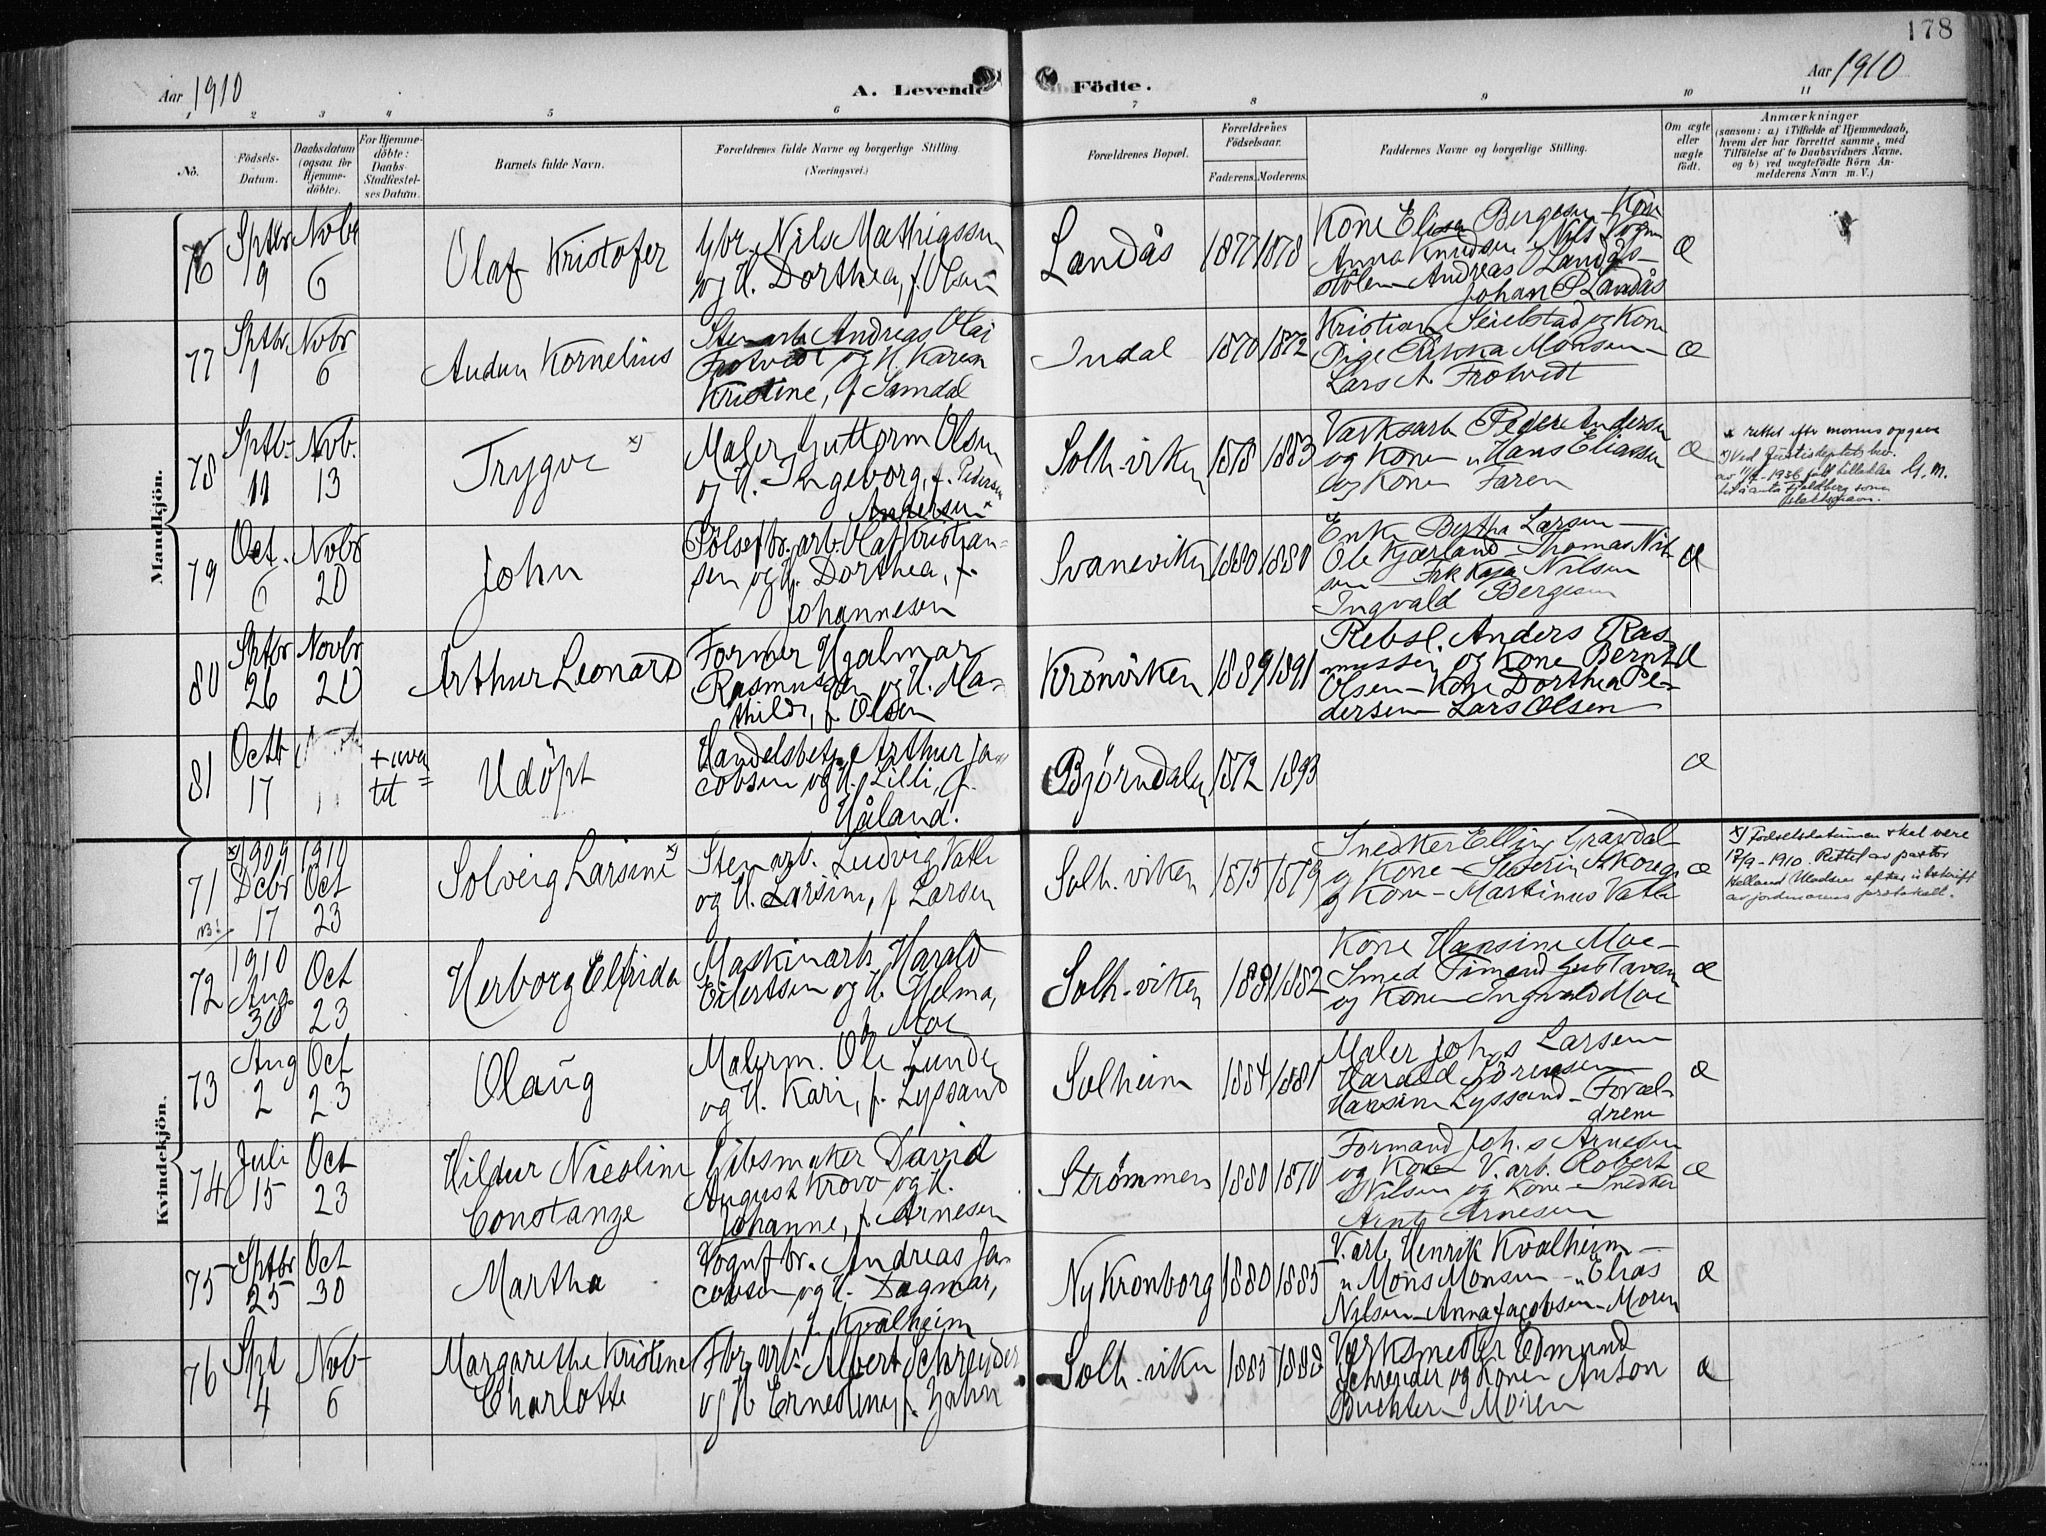 178
Aar 1910
A. Levende Födte.
Aar 1910
1 2 3 4 5 6 7 8 9 10 11
No.
Födsels-Datum.
Daabsdatum (ogsaa for Hjemmedöbte).
For Hjemmedöbte: Daabs Stadfæstelses Datum.
Barnets fulde Navn.
Forældrenes fulde Navne og borgerlige Stilling. (Næringsvei.)
Forældrenes Bopæl.
Forældrenes Födselsaar.
Faderens. Moderens.
Faddernes Navne og borgerlige Stilling.
Om ægte eller uægte født.
Anmærkninger
(saasom: a.) i Tilfælde af Hjemmedaab,
hvem der har forrettet samme, med
Tilföielse af to Daabsvidners Navne.
og b.) ved uægtefödte Börn Anmelderens Navn m. V.)
Mandkjön.
76 Sptbr 9 Novbr 6
Olaf Kristofer
Nils Mathiassen
og H. Dorthea, f. Olsen
Landås 1877 1878
Kone Elisa Bergesen - Kone
Anna Knudsen Nils
Andreas Landås-
Johan P Landås
æ
77 Sptbr 1 Novbr 6
Audun Kornelius
Stenarb. Andreas Olai
Frotvedt og H. Karen
Kristine, f. Samdal
Indal 1870 1872
Kristian Seielstad og Kone
Pige Rikka Monsen -
Lars A. Frotvedt
æ
78 Sptb. 11 Novb. 13
Trygve x)
Maler Guttorm Olsen
og H. Ingeborg, f. Pedersen
Andersen x
Solh-viken 1878 1883
Værksarb Peder Andersen
og Kone " Hans Eliassen
og Kone Faren
æ
x rettet efter morens opgave
x) Ved Justisdeptets brev.
av 11/2-1936 tillatelse G.M.
til å anta Fjeldberg som
slektsnavn.
79 Oct. 6 Novbr 20
John
Pölsefbr.arb. Olaf Kristian-
sen og H. Dorthea, f.
Johannesen
Svaneviken 1880 1880
Enke Bertha Larsen -
Ole Kjærland - Thomas Nil-
sen - Frk Kaja Nilsen
Ingvald Bergesen
æ
80 Sptbr 26 Novbr 20
Arthur Leonard
Former Hjalmar
Rasmussen og H. Ma-
thilde, f. Olsen
Kronviken 1889 1891
Rebsl. Anders Ras-
mussen og Kone Bernt
Olsen - Kone Dorthea Pe-
dersen - Lars Olsen
æ
81 Octb 17
Udöpt
Handelsbetj. Arthur Ja-
cobsen og H. Lilli, f.
Håland.
Bjørndalen 1872 1893
æ
Kvindekjön.
71 x) 1909 Dcbr 17 1910 Oct 23
NB!
Solveig Larsine x)
Stenarb. Ludvig Vatle
og H. Larsine, f Larsen
Solh. viken 1875 1879
Snedker Elling Gravdal
og Kone - Severin Skauge
og Kone - Martinus Vatle
æ
x) Fodselsdatumen skal vere
17/9-1910. Rettet av pastor
Helland Madsen efter utskrift
av jordmorens protokoll.
72 1910 Aug 30 Oct 23
Herborg Elfrida
Maskinarb Harald
Eilertsen og H. Helma,
f Moe
Solh-viken 1881 1882
Kone Hansine Moe -
Smed Timand Gustavsen
og Kone Ingvald Moe
æ
73 Aug 2 Oct 23
Olaug
Malerm. Ole Lunde
og H. Kari, f. Lyssand
Solheim 1884 1881
Maler Johs Larsen
Harald Sörensen -
Hansine Lyssand - Foræl-
drene
æ
74 Juli 15 Oct 23
Hildur Nicoline
Constanze
Gibsmaker David
August Krovo og H.
Johanne, f. Arnesen
Strømmen 1880 1870
Formand Joh.s Arnesen
og Kone V.arb. Robert
Nilsen og Kone - Snedker
Arnt Arnesen
æ
75 Sptbr 25 Oct 30
Martha
Vognfbr. Andreas Ja-
cobsen og H. Dagmar,
f. Kvalheim
Ny Kronborg 1880 1885
V.arb Henrik Kvalheim -
" Mons Monsen - " Elias
Nilsen - Anna Jacobsen - Moren
æ
76 Spt 4 Novb- 6
Margarethe Kristine
Charlotte
Fbr.arb. Albert Schreuder
og H Ernestine, f. Jahn
Solh. viken 1885 1888
Værksmester Edmund
Schreuder og Kone Anton
Buchter - Moren
æ